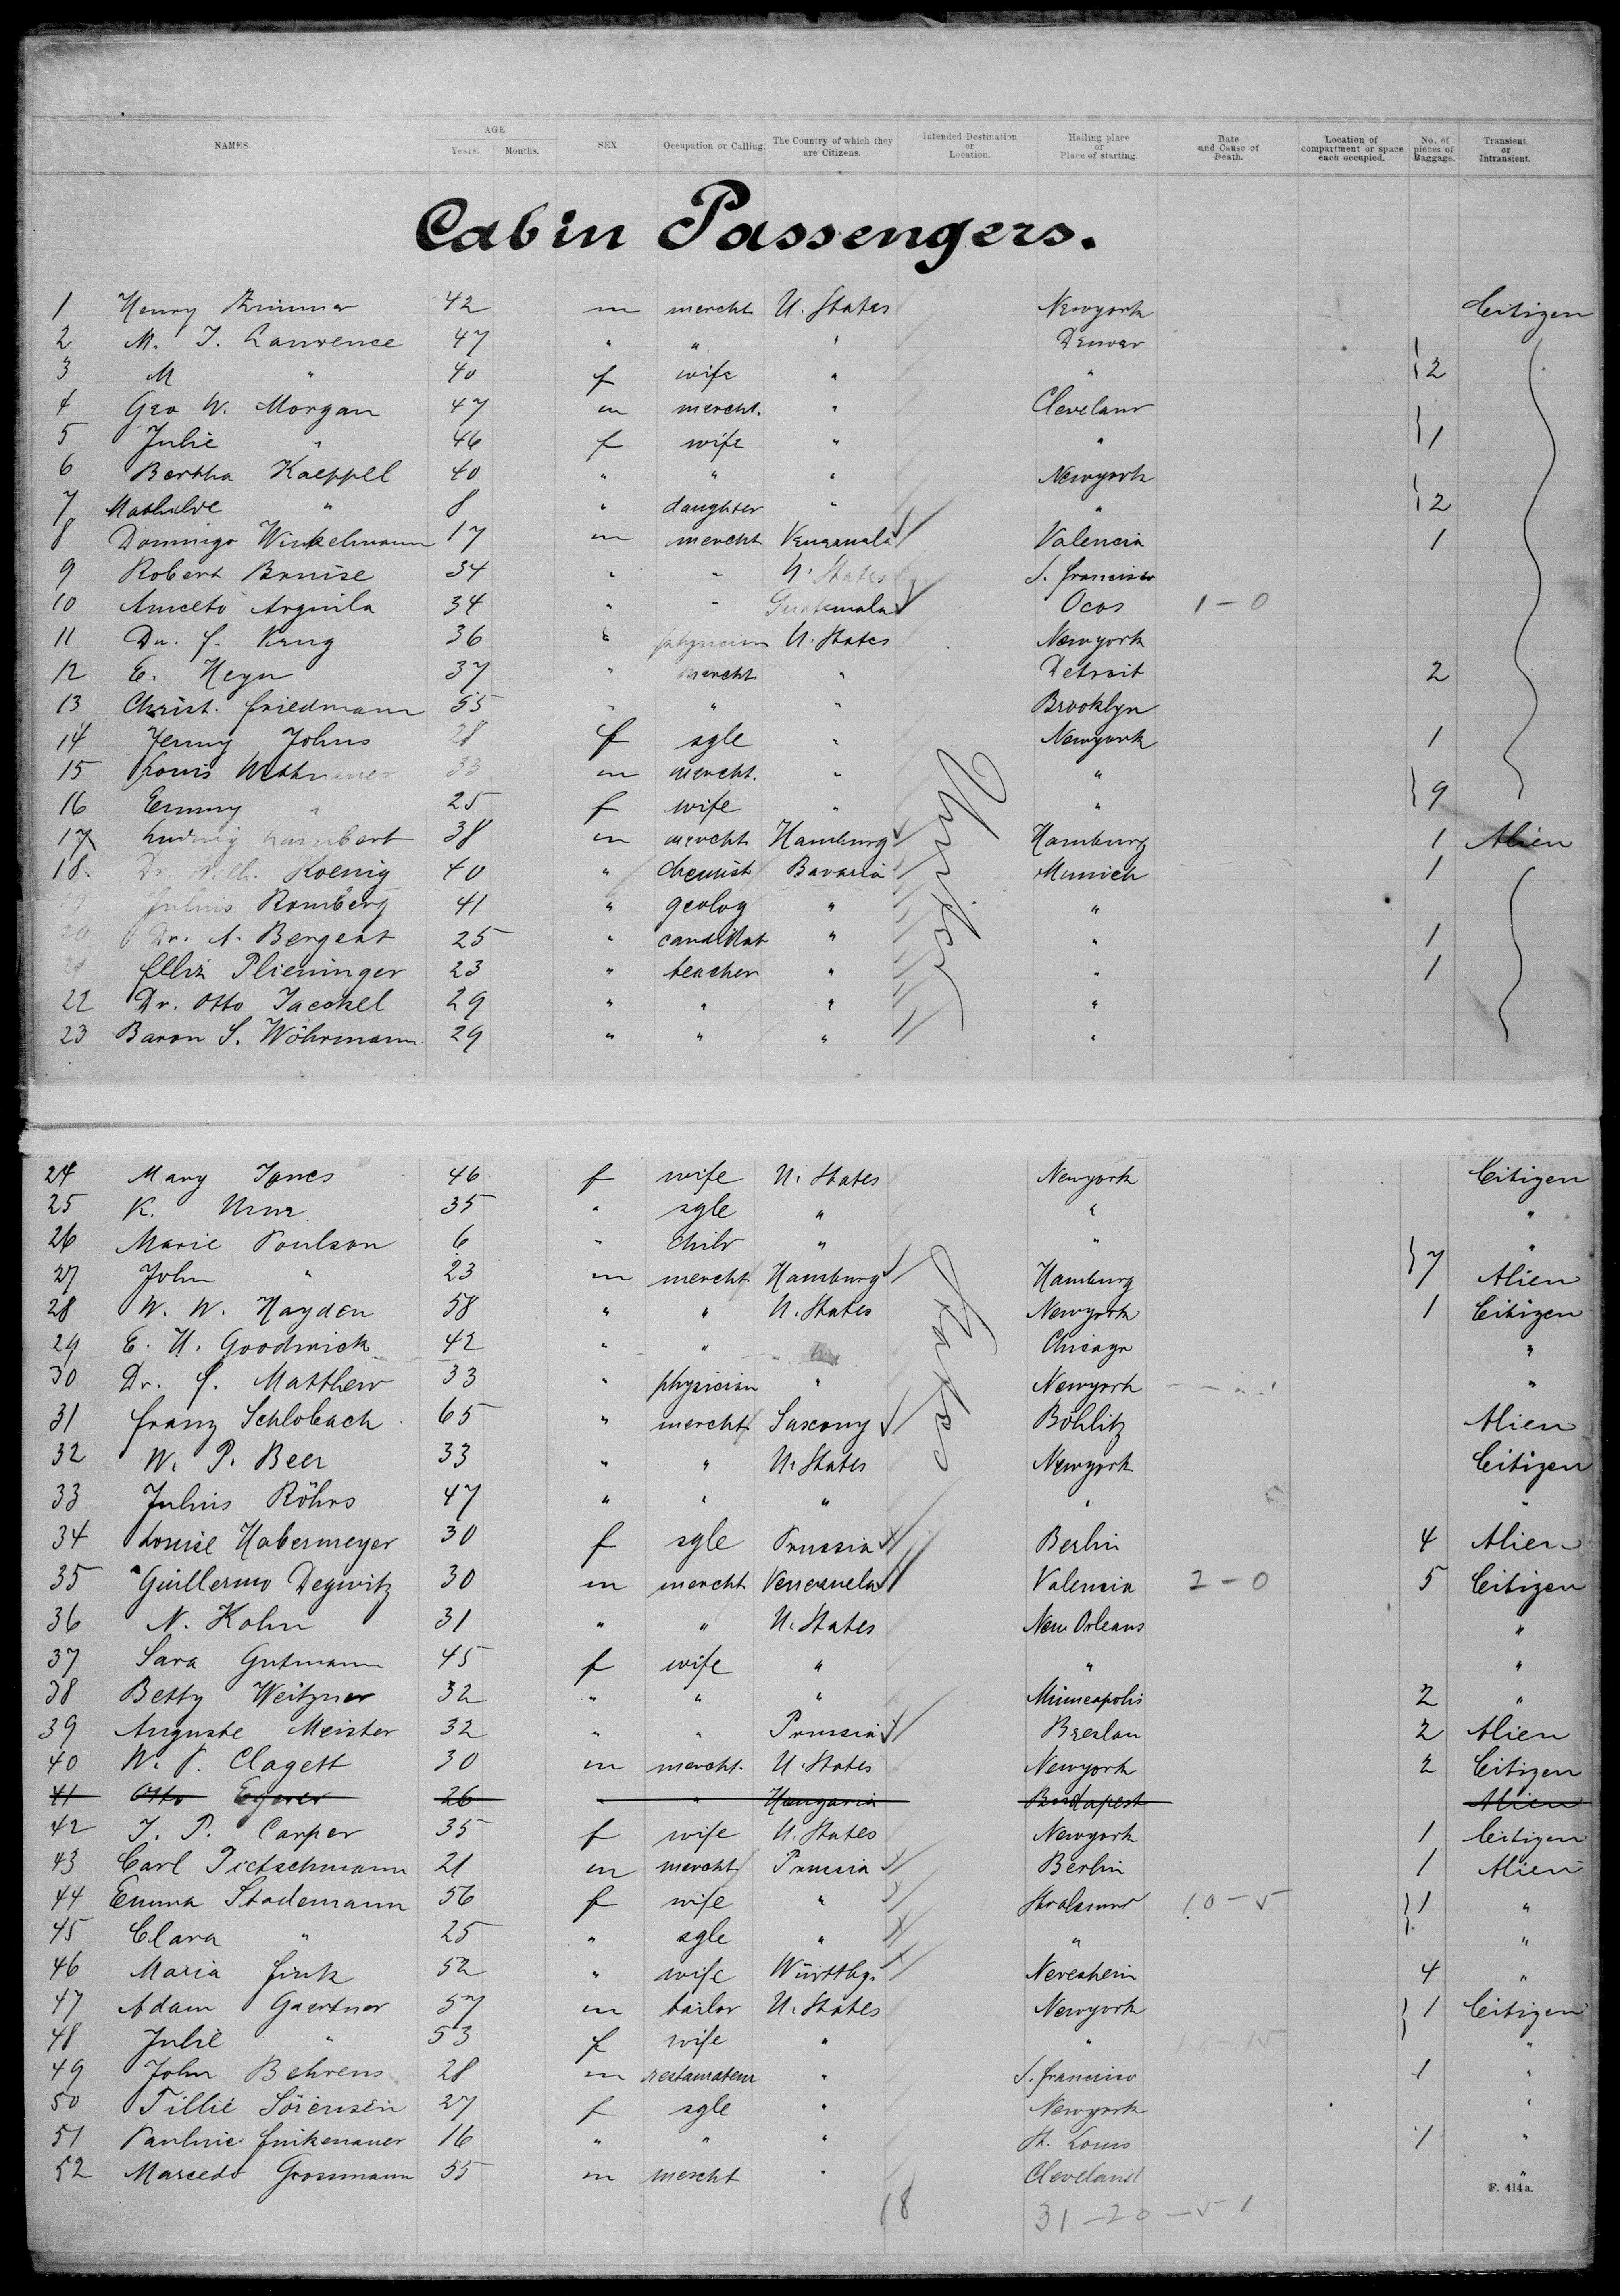 NAMES. AGE Years. Months. SEX Occupation or Calling. The Country of which they are Citizens. Intended Destination or Location. Hailing place or Place of starting. Date and Cause of Death. Location of compartment or space each occupied. No. of pieces of Baggage. Transient or Intransient.
Cabin Passengers.
1 Henry 42 m mercht U. States Newyork Citizen
2 M. J. Lawrence 47 " " " Denver
3 M " 40 f wife " " } 2
4 Geo W. Morgan 47 m mercht. " Cleveland
5 Julie " 46 f wife " " } 1
6 Bertha Kaeppel 40 " " " Newyork
7 Mathilde " 8 " daughter " " } 2
8 Domingo Winkelmann 17 m mercht Venezuela Valencia 1
9 Robert Bruise 34 " " U. States S. francisco
10 Aniceto Arguila 34 " " Guatemala Ocos 1-0
11 Dr. f. Krug 36 " physician U. States Newyork
12 E. Heyn 37 " mercht " Detroit 2
13 Christ. friedmann 55 " " " Brooklyn
14 Jenny Johns 28 f sgle " Newyork 1
15 Louis 33 m mercht. " "
16 Emmy " 25 f wife " " } 9
17 Ludwig Lambert 38 m mercht Hamburg Hamburg 1 Alien
18 Dr. Wilh. Koenig 40 " chemist Bavaria Munich 1
19 Julius Romberg 41 " geolog " "
20 Dr. A. Bergeat 25 " candidat " " 1
21 fellix Plieninger 23 " teacher " " 1
22 Dr. Otto Jaeckel 29 " " " "
23 Baron S. Wöhrmann 29 " " " "
United
24 Mary Jones 46 f wife U. States Newyork Citizen
25 K. 35 " sgle " " "
26 Marie Poulson 6 " child " " "
27 John " 23 m mercht Hamburg Hamburg } 7 Alien
28 W. W. Hayden 58 " " U. States Newyork 1 Citizen
29 E. H. Goodwick 42 " " Chicago "
30 Dr. f. Matthew 33 " physician " Newyork "
31 franz Schlobach 65 " mercht Saxony Böhlitz Alien
32 W. P. Beer 33 " " U. States Newyork Citizen
33 Julius Röhrs 47 " " " " "
States
34 Louise Habermeyer 30 f sgle Prussia Berlin 4 Alien
35 Guillermo Degwitz 30 m mercht Venezuela Valencia 2-0 5 Citizen
36 N. Kohn 31 " " U. States New Orleans "
37 Sara Gutmann 45 f wife " " "
38 Betty Weitzner 32 " " " Minneapolis 2 "
39 Auguste Meister 32 " " Prussia Breslau 2 Alien
40 W. P. Clagett 30 m mercht. U. States Newyork 2 Citizen
41 Otto Egerer 26 " " Hungaria Budapest Alien
42 J. P. Carper 35 f wife U. States Newyork 1 Citizen
43 Carl Pietschmann 21 m mercht Prussia Berlin 1 Alien
44 Emma Stademann 56 f wife " Stralsund 10-5 } 1 "
45 Clara " 25 " sgle " " "
46 Maria fink 52 " wife Württbg. Neresheim 4 "
47 Adam Gaertner 57 m tailor U. States Newyork } 1 Citizen
48 Julie " 53 f wife " " "
49 John Behrens 28 m restaurateur " S. francisco 1 "
50 Tillie Sörensen 27 f sgle " Newyork "
51 Pauline finkenauer 16 " " " St. Louis 1 "
52 Marcedo Grossmann 55 m mercht " Cleveland "
F. 414a.
18 31-20-51